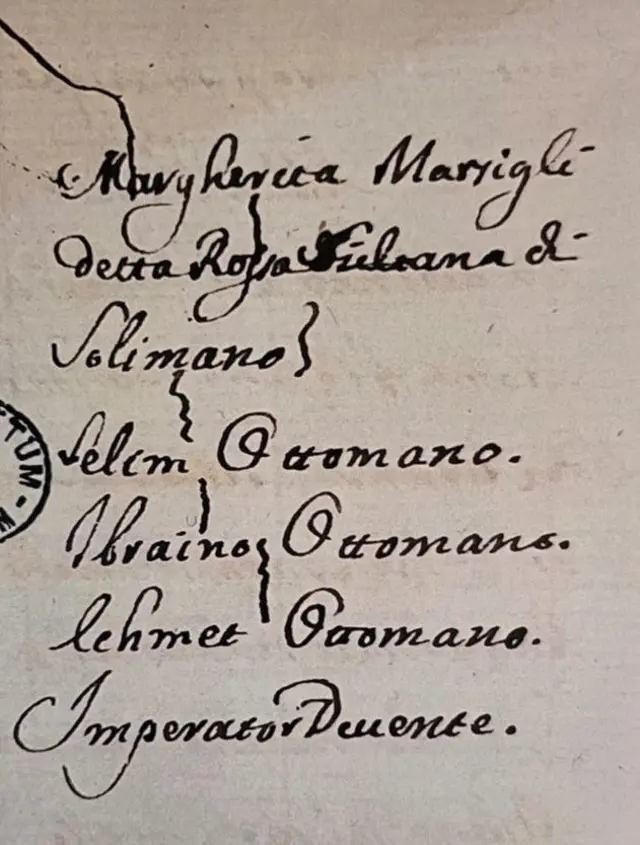 Margherita Marsigli
detta Rossa Sultana di
Solimano}
Selim Ottomano.
Ibraino Ottomano.
Echmet Ottomano.
Imperator Viuente.
TUM